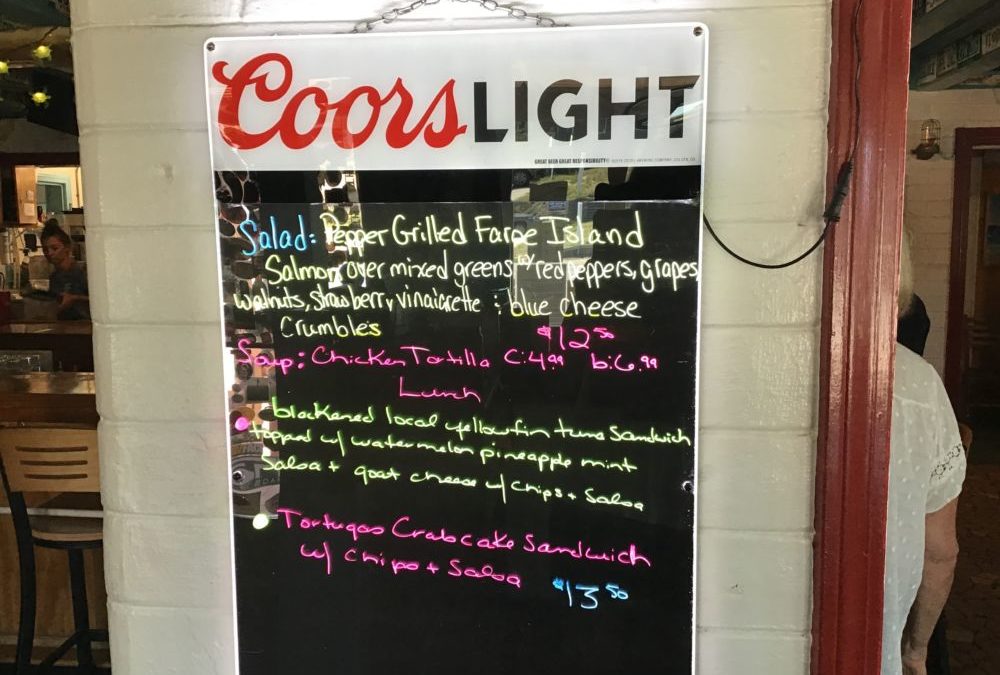 Coors LIGHT
GREAT BEER GREAT RESPONSIBILITY
Salad: Pepper Grilled Faroe Island
Salmon over mixed greens w/ red peppers, grapes,
walnuts, strawberry vinaigrette : blue cheese
Crumbles $12.50
Soup: Chicken Tortilla C: 4.99 b: 6.99
Lunch
blackened local yellowfin tuna Sandwich
topped w/ watermelon pineapple mint
Salsa + goat cheese w/ Chips + Salsa
Tortugas Crabcake Sandwich
w/ Chips + Salsa $13.50